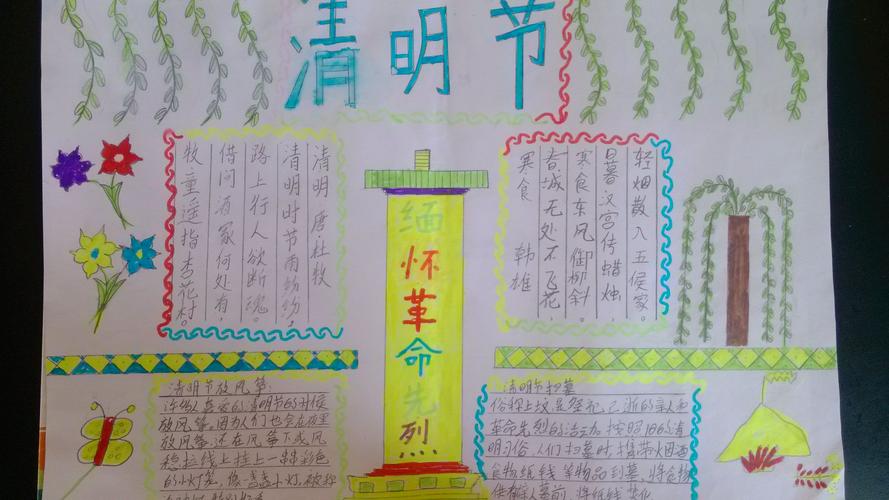 清明节
清明 唐·杜牧
清明时节雨纷纷，
路上行人欲断魂。
借问酒家何处有，
牧童遥指杏花村。
缅怀革命先烈
寒食 韩雄
春城无处不飞花
寒食东风御柳斜。
日暮汉宫传蜡烛，
轻烟散入五侯家。
清明节放风筝：
许多人喜爱的清明节的时候
放风筝。因为人们也会在夜里
放风筝，还在风筝下或风
稳拉线上挂上一串彩色
的小灯笼，像盏盏小灯，被称
清明节扫墓
俗称上坟是祭祀已逝的亲人和
革命先烈的活动，按照旧的清
明习俗，人们扫墓时，携带
食物纸钱等物品到墓，将食物
在墓前，将纸钱